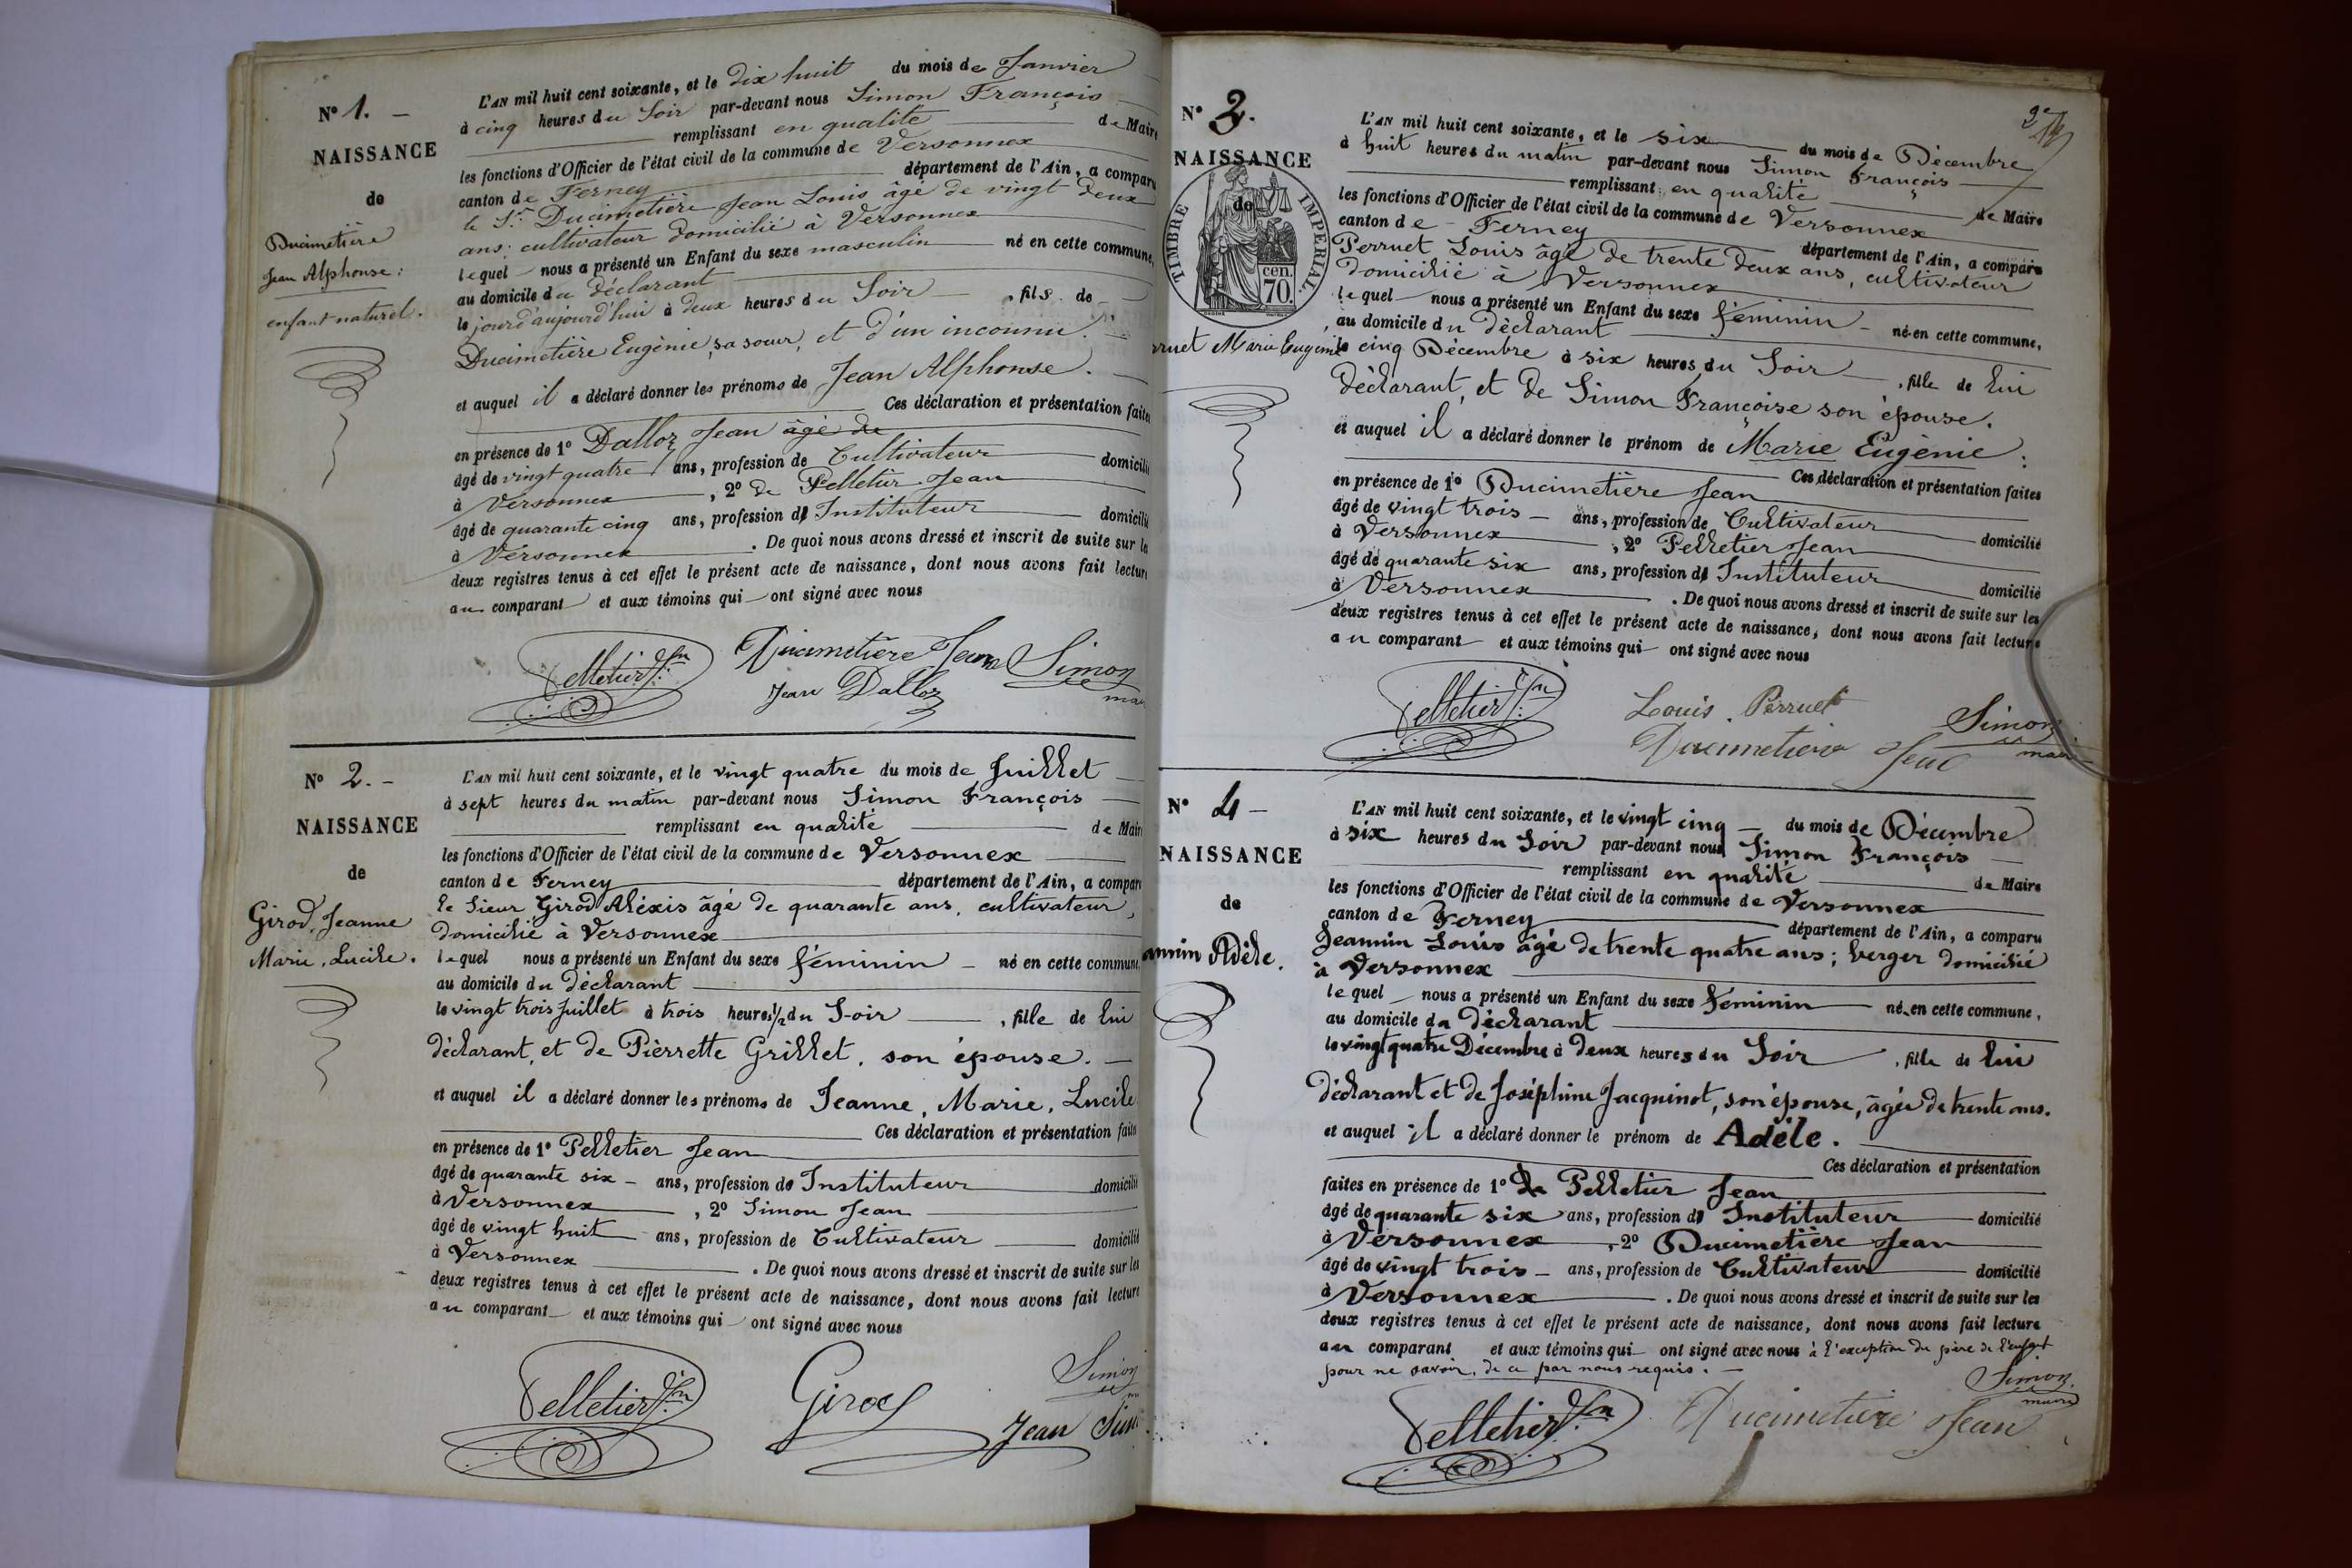 N° 1. —
NAISSANCE
de
Ducimetière
Jean Alphonse :
enfant naturel.
L'AN mil huit cent soixante, et le dix huit du mois de Janvier
à cinq heures du Soir par-devant nous Simon François
remplissant en qualité de Maire
les fonctions d'Officier de l'état civil de la commune de Versonnex
canton de Ferney département de l'Ain, a comparu
le Sr. Ducimetière Jean Louis âgé de vingt deux
ans; cultivateur domicilié à Versonnex
lequel nous a présenté un Enfant du sexe masculin né en cette commune,
au domicile du déclarant
le jourd'aujourd'hui à deux heures du Soir , fils de
Ducimetière Eugènie, sa soeur, et d'un inconnu.
et auquel il a déclaré donner les prénoms de Jean Alphonse.
Ces déclaration et présentation faites
en présence de 1° Dalloz Jean âgé de
âgé de vingt quatre ans, profession de Cultivateur domicilié
à Versonnex , 2° de Pelletier Jean
âgé de quarante cinq ans, profession d' Instituteur domicilié
à Versonnex . De quoi nous avons dressé et inscrit de suite sur les
deux registres tenus à cet effet le présent acte de naissance, dont nous avons fait lecture
au comparant et aux témoins qui ont signé avec nous
Pelletier Jn Ducimetière Jean Simon
Jean Dalloz mai
N° 2. —
NAISSANCE
de
Girod, Jeanne
Marie, Lucile.
L'AN mil huit cent soixante, et le vingt quatre du mois de Juillet
à sept heures du matin par-devant nous Simon François
remplissant en qualité de Maire
les fonctions d'Officier de l'état civil de la commune de Versonnex
canton de Ferney département de l'Ain, a comparu
le Sieur Girod Aléxis âgé de quarante ans, cultivateur,
domicilié à Versonnex
lequel nous a présenté un Enfant du sexe féminin né en cette commune,
au domicile du déclarant
le vingt trois Juillet à trois heures 1/2 du Soir , fille de lui
déclarant, et de Pièrrette Grillet, son épouse. —
et auquel il a déclaré donner les prénoms de Jeanne, Marie, Lucile
Ces déclaration et présentation faites
en présence de 1° Pelletier Jean
âgé de quarante six ans, profession d' Instituteur domicilié
à Versonnex , 2° Simon Jean
âgé de vingt huit ans, profession de Cultivateur domicilié
à Versonnex . De quoi nous avons dressé et inscrit de suite sur les
deux registres tenus à cet effet le présent acte de naissance, dont nous avons fait lecture
au comparant et aux témoins qui ont signé avec nous
Pelletier Jn Girod Simon
Jean Sim
N° 3.
NAISSANCE
de
TIMBRE IMPERIAL
cen.
70.
rruet Marie Eugénie
L'AN mil huit cent soixante, et le six du mois de Décembre
à huit heures du matin par-devant nous Simon François
remplissant en qualité de Maire
les fonctions d'Officier de l'état civil de la commune de Versonnex
canton de Ferney département de l'Ain, a comparu
Perruet Louis âgé de trente deux ans, cultivateur
domicilié à Versonnex
lequel nous a présenté un Enfant du sexe féminin né en cette commune,
au domicile du déclarant
le cinq Décembre à six heures du Soir , fille de lui
déclarant, et de Simon Françoise son épouse.
et auquel il a déclaré donner le prénom de Marie Eugènie :
Ces déclaration et présentation faites
en présence de 1° Ducimetière Jean
âgé de vingt trois ans, profession de Cultivateur domicilié
à Versonnex , 2° Pelletier Jean
âgé de quarante six ans, profession d' Instituteur domicilié
à Versonnex . De quoi nous avons dressé et inscrit de suite sur les
deux registres tenus à cet effet le présent acte de naissance, dont nous avons fait lecture
au comparant et aux témoins qui ont signé avec nous
Pelletier Jn Louis Perruet Simon
Ducimetière Jean mair
N° 4 —
NAISSANCE
de
annin Adèle.
L'AN mil huit cent soixante, et le vingt cinq du mois de Décembre
à six heures du Soir par-devant nous Simon François
remplissant en qualité de Maire
les fonctions d'Officier de l'état civil de la commune de Versonnex
canton de Ferney département de l'Ain, a comparu
Jeannin Louis âgé de trente quatre ans; berger domicilié
à Versonnex
lequel nous a présenté un Enfant du sexe féminin né en cette commune,
au domicile du déclarant
le vingt quatre Décembre à deux heures du Soir , fille de lui
déclarant et de Joséphine Jacquinot, son épouse, âgée de trente ans.
et auquel il a déclaré donner le prénom de Adèle.
Ces déclaration et présentation
faites en présence de 1° de Pelletier Jean
âgé de quarante six ans, profession d' Instituteur domicilié
à Versonnex , 2° Ducimetière Jean
âgé de vingt trois ans, profession de Cultivateur domicilié
à Versonnex . De quoi nous avons dressé et inscrit de suite sur les
deux registres tenus à cet effet le présent acte de naissance, dont nous avons fait lecture
au comparant et aux témoins qui ont signé avec nous à l'exception du père de l'enfant
pour ne savoir, de ce par nous requis. —
Simon
maire
Pelletier Jn Ducimetière Jean